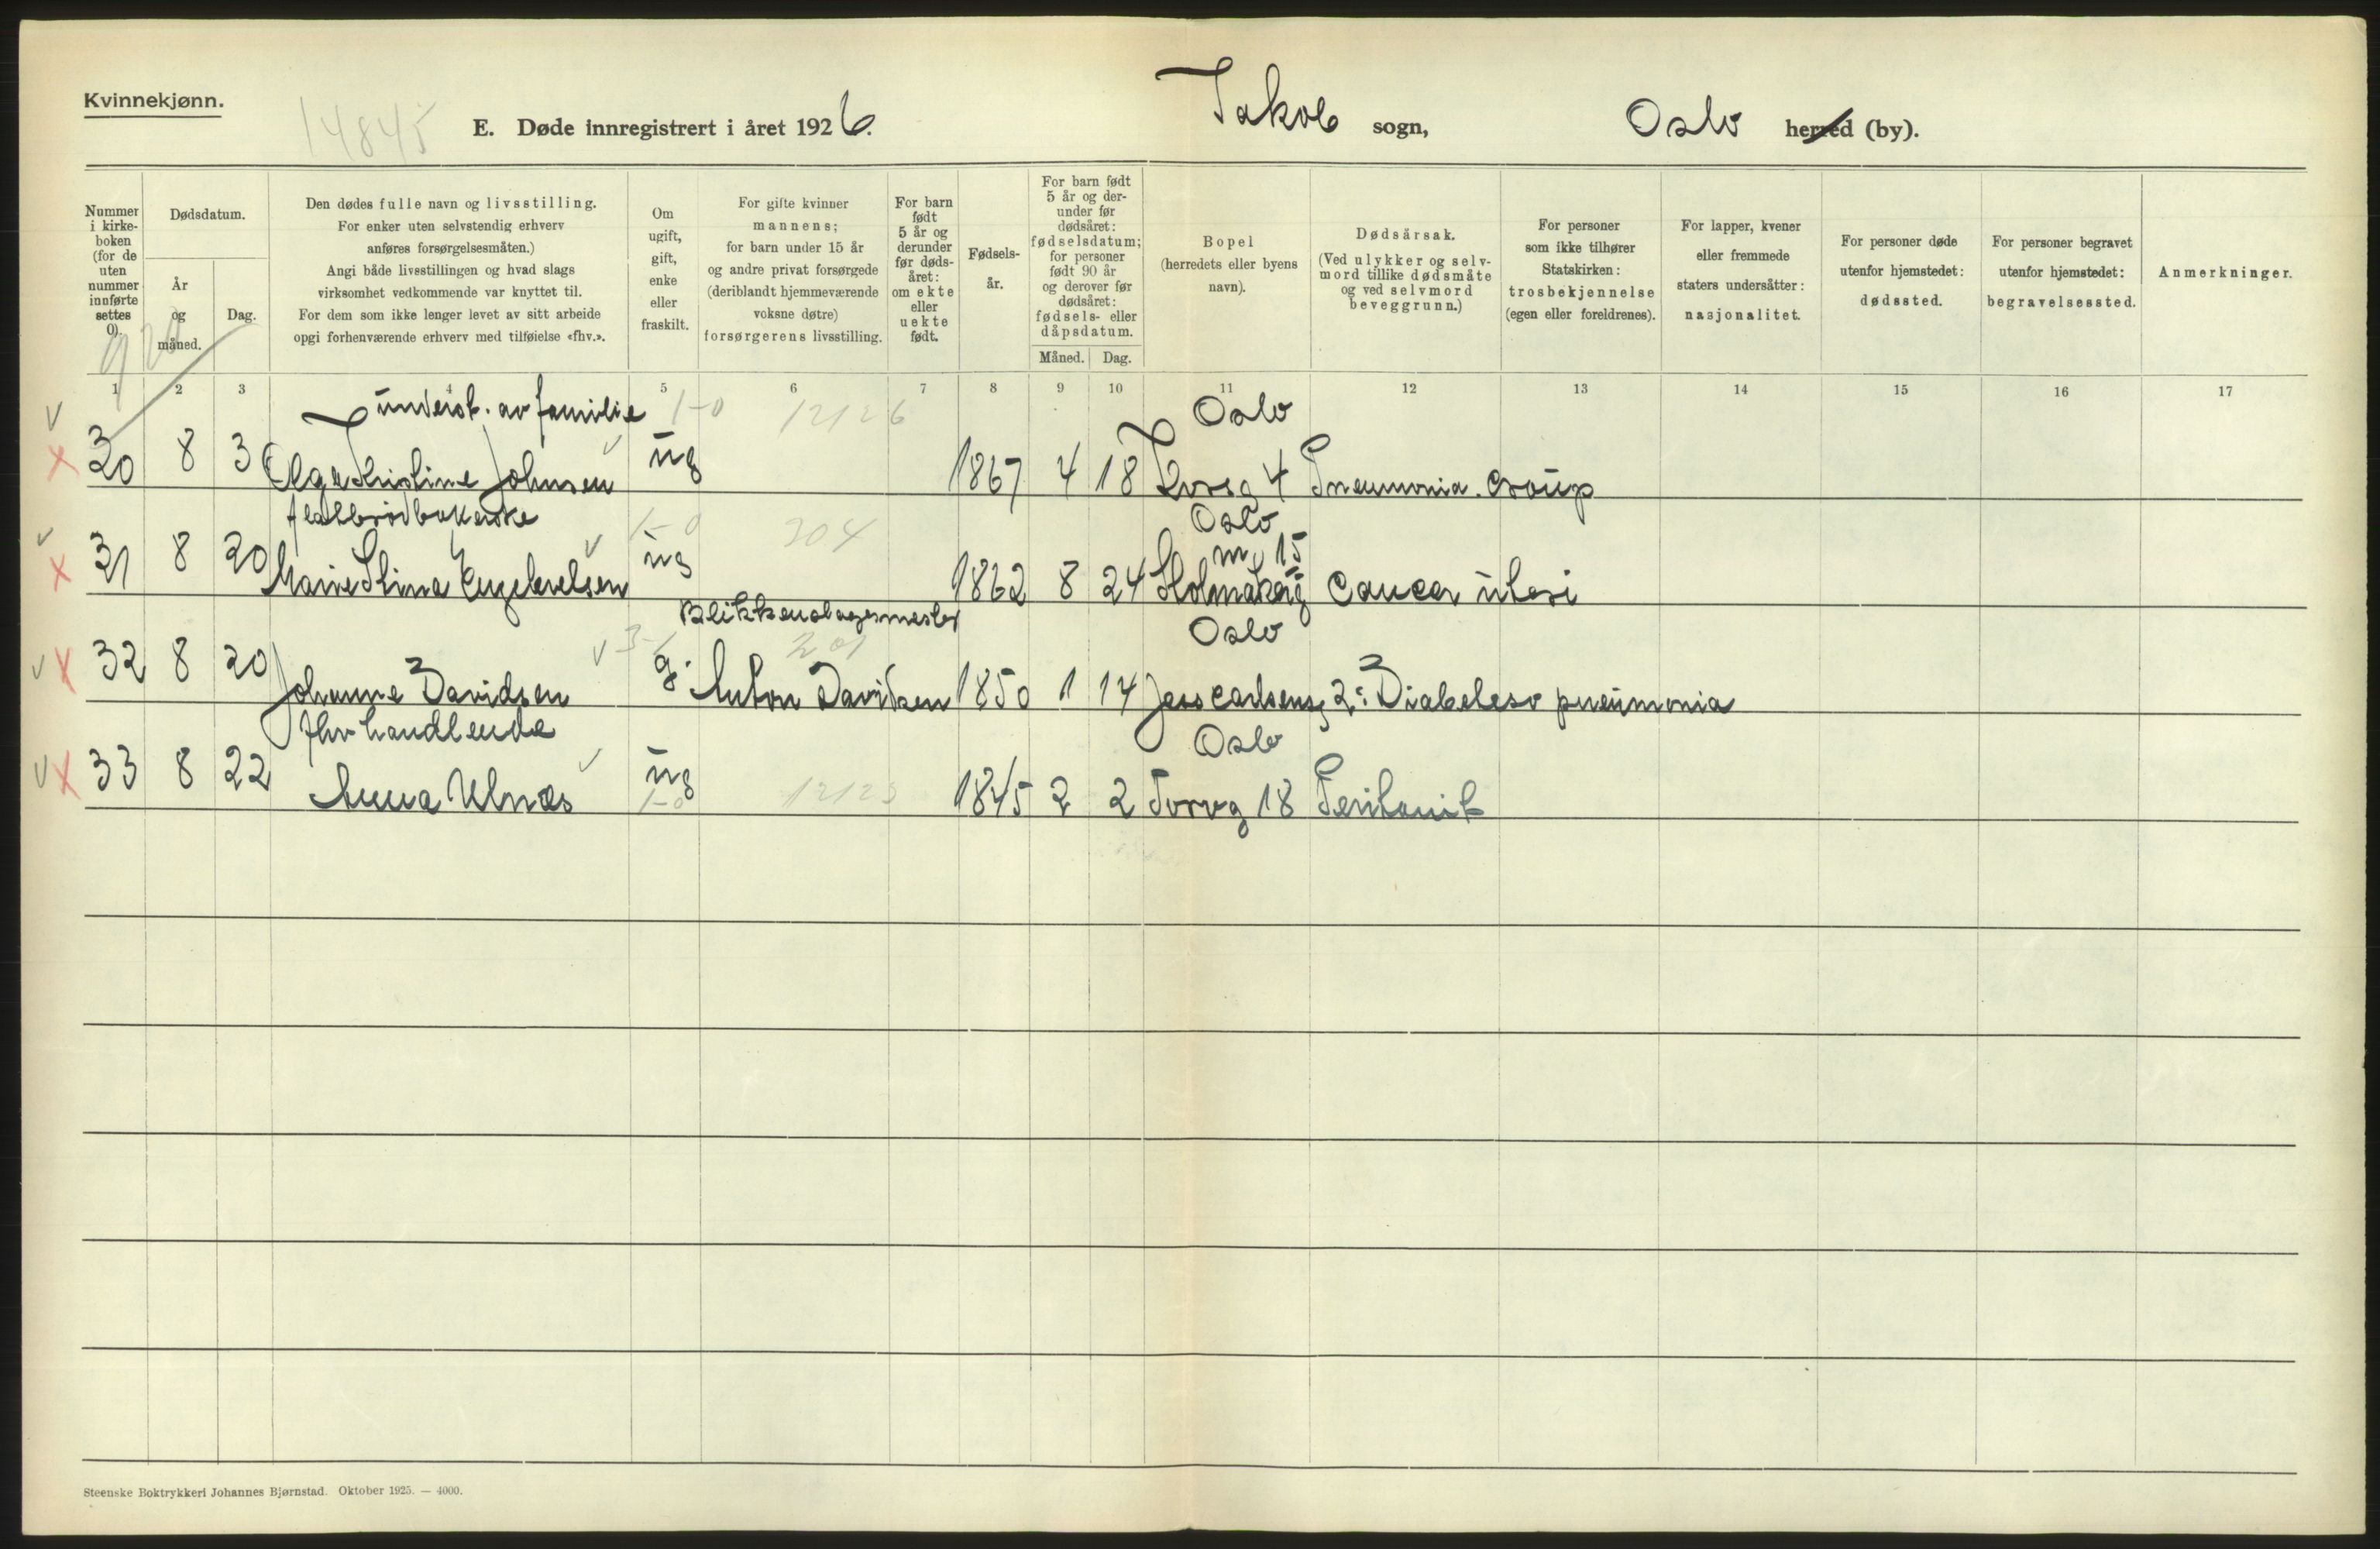 Kvinnekjønn.
14845
E. Døde innregistrert i året 1926.
Jakob sogn,
Oslo herred (by).
Nummer i kirkeboken (for de uten nummer innførte settes 0).
Dødsdatum.
År og måned.
Dag.
Den dødes fulle navn og livsstilling.
For enker uten selvstendig erhverv
anføres forsørgelsesmåten.)
Angi både livsstillingen og hvad slags
virksomhet vedkommende var knyttet til.
For dem som ikke lenger levet av sitt arbeide
opgi forhenværende erhverv med tilføielse «fhv.».
Om ugift, gift, enke eller fraskilt.
For gifte kvinner
mannens;
for barn under 15 år
og andre privat forsørgede
(deriblandt hjemmeværende
voksne døtre)
forsørgerens livsstilling.
For barn født 5 år og derunder før dødsåret: om ekte eller uekte født.
Fødselsår.
For barn født 5 år og derunder før dødsåret: fødselsdatum; for personer født 90 år og derover før dødsåret: fødsels- eller dåpsdatum.
Måned. Dag.
Bopel
(herredets eller byens
navn).
Dødsårsak.
(Ved ulykker og selv-
mord tillike dødsmåte
og ved selvmord
beveggrunn.)
For personer
som ikke tilhører
Statskirken:
trosbekjennelse
(egen eller foreldrenes).
For lapper, kvener
eller fremmede
staters undersåtter:
nasjonalitet.
For personer døde
utenfor hjemstedet:
dødssted.
For personer begravet
utenfor hjemstedet:
begravelsessted.
Anmerkninger.
1 2 3 4 5 6 7 8 9 10 11 12 13 14 15 16 17
underst. av familie 1-0 12126 Oslo
30 8 3 Olga Kristine Johnsen ug 1867 4 18 Torvg 4 Pneumonia. Croup
flatbrødbakerske 1-0 304 Oslo
31 8 20 Marie Stina Engebretsen ug 1862 8 24 15 Cancer uteri
Blikkenslagermester Oslo
3-1 201
32 8 20 Johanne Davidsen g. Anton Davidsen 1850 1 14 2: Diabetes o pneumonia
fhv handlende Oslo
33 8 22 Anna Ulnæs ug 1845 2 2 Torvg 18 Peritonit
1-0 12123
Steenske Boktrykkeri Johannes Bjørnstad. Oktober 1925. — 4000.